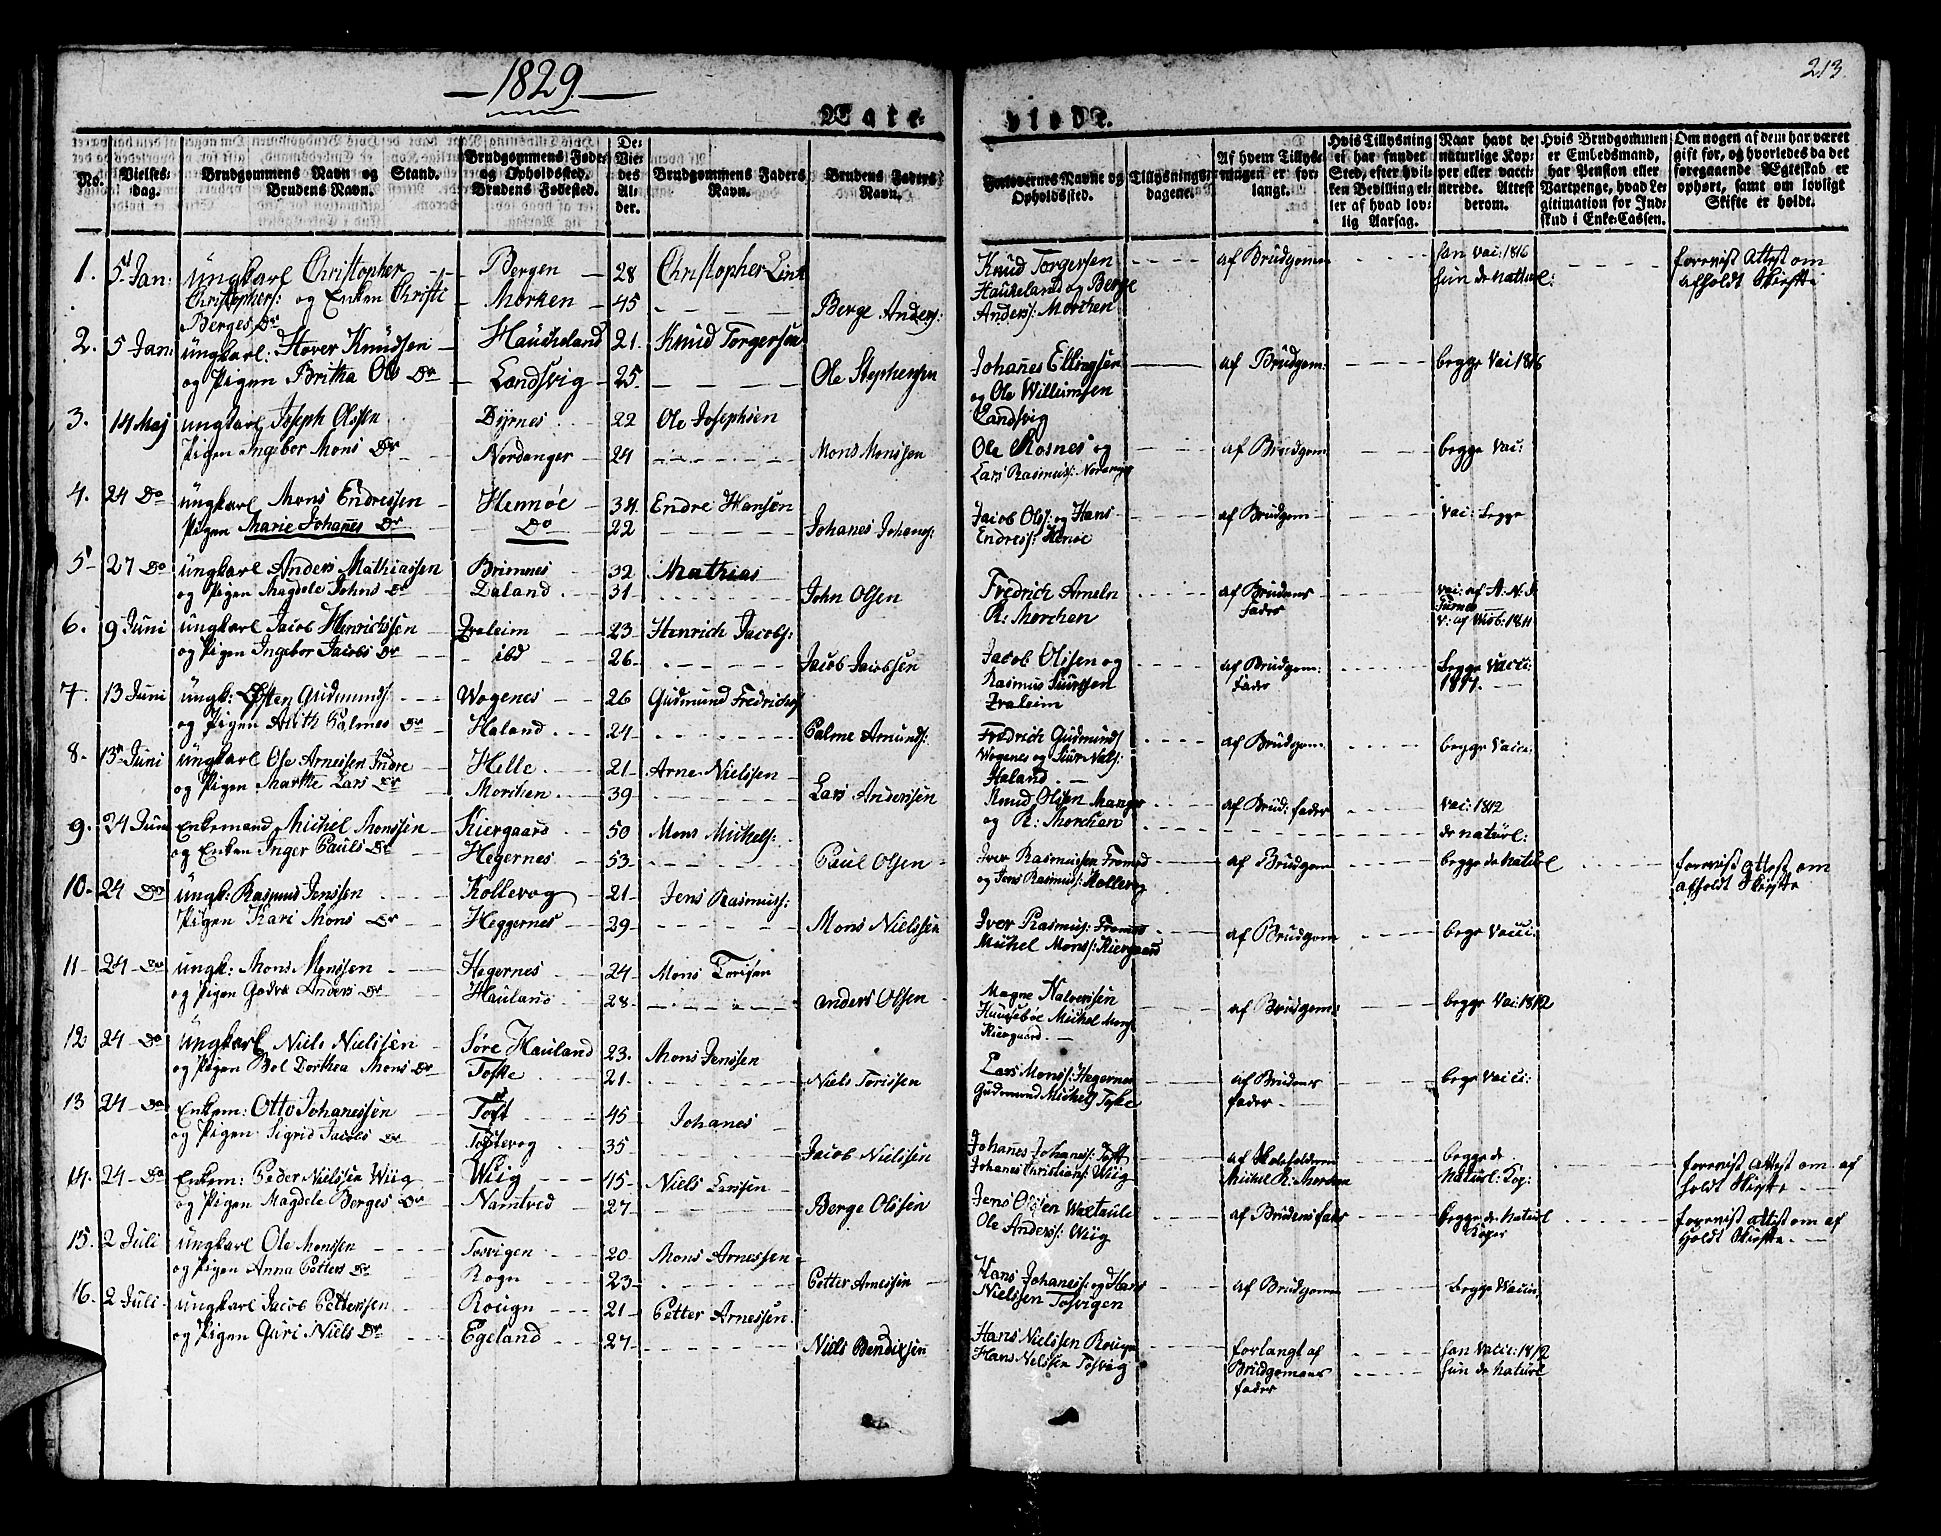 1829
213.
Ægte-
viede.
No.
Vielses-
dag.
Brudgommens Navn og Stand.
Brudens Navn.
Brudgommens Fødested
og Opholdssted.
Brudens Fødested.
De
Vie-
des
Al-
der.
Brudgommens Faders
Navn.
Brudens Faders
Navn.
Forlovernes Navne og
Opholdssted.
Tillysnings-
dagene.
Af hvem Tillys-
ningen er for-
langt.
Hvis Tillysning
ei har fundet
Sted, efter hvil-
ken Bevilling el-
ler af hvad lov-
lig Aarsag.
Naar havt de
naturlige Kop-
per eller vacci-
nerede. Attest
derom.
Hvis Brudgommen
er Embedsmand,
har Pension eller
Vartpenge, hvad Le-
gitimation for Ind-
skud i Enke-Cassen.
Om nogen af dem har været
gift før, og hvorledes da det
foregaaende Ægteskab er
ophørt, samt om lovligt
Skifte er holdt.
1. 5 Jan: Ungkarl Christopher Bergen 28 Christopher Knud Torgersen af Brudgomm han vac: 1816 forevist attest om
Christophers: og Enken Christi Morken 45 Berge Anders: Haukeland og Berge hun de naturl: afholdt Skifte
Berges Dr Anders: Morchen
2. 5 Jan: Ungkarl: Haver Knudsen Haukeland 21. Knud Torgersen Johanes Ellingsen af Brudgom: begge vac 1816
og Pigen Britha Ols Dr Landsvig 25. Ole Stephensen og Ole Willumsen
Landsvig
3. 14 Maj ungkarl Joseph Olssen Dyrnes 22 Ole Josephsen Ole Rosnes og af Brudgom: begge vac:
Pigen Ingebor Mons Dr Nordanger 24 Mons Monssen Lars Rasmuss:
4. 24 Do Ungkarl Mons Endressen Hennøe 34 Endre Hansen Jacob Olss: og Hans af Brudgom vac: begge
Pigen Marie Johanes Dr Do 22 Johanes Johans: Endress: Henøe
5 27 Do ungkarl Anders Mathiassen Brimnes 32 Mathias Fredrich Ameln af Brudens
og Pigen Magdele Johns Dr 31 John Olsen R: Morchen Fader
6. 9 Juni ungkarl Jacob Henrichssen 23 Henrich Jacobs: Jacob Olssen og af Brudgom: begge vacci:
og Pigen Ingebor Jacobs Dr ibd 26 Jacob Jacobsen Rasmus Siurssen Fader
7. 13 Juni ungk: Østen Gudmunds Wogenes 26 Gudmund Fredrichs Fredrich Gudmunds af Brudgom: begge vacci:
og Pigen Anth Palmes Dr Haland 24 Palme Amunds: Wogenes og
Haland
8. 13 Juni ungkarl Ole Arnessen Indre Helle 21 Arne Nielssen Knud Olsen Manger af Brud: fader vac: 1812
og Pigen Marthe Lars Dr Morchen 39 Lars Anderssen og R: Morchen de naturl:
9. 24 Juni Enkemand Michel Monssen Kiergaard 50 Mons Michels: Iver Rasmussen Fromed af Brudgom begge de naturl forevist attest om
og Enken Inger Pauls Dr Hegernes 53 Paul Olsen og Jens Rasmus: Kollevog afholdt Skifte
10. 24 Do ungk: Rasmus Jenssen Kollevog 21 Jens Rasmuss: Iver Rasmus: Fromed af Brudgom begge vacci:
Pigen Kari Mons Dr Heggernes 29 Mons Nielssen Michel Mons: Kiergaard
11 24 Do ungk: Mons Monssen Hegernes 24 Mons Torisen Magne Halversen af Brudgom: begge vac: 1812
og Pigen Anders Dr Hauland 28 Anders Olsen Michel Mons
Kiergaard
12 24 Do Ungkarl Niels Nielssen Søre Hauland 23. Mons Jenssen Lars Mons: Hegernes af Brudens begge vacci:
og Pigen Bol Dorthea Mons Dr Toske 21 Niels Torissen Gudmund Michels Toske fader
13 24 Do Enkem: Otto Johanessen Toft 45 Johanes Johanes Johans: Toft begge de forevist attest om af
og Pigen Sigrid Jacobs Dr Toftevog 35 Jacob Nielssen Johanes Christians: Wiig Michel R: Morchen naturl: Kop: holdt Skifte
14. 24 Do Enkem: Peder Nielssen Wiig Wiig 45 Niels Larssen Jens Olssen af Brudens fader begge de naturl forevist attest om af
og Pigen Magdele Berges Dr Namtved 27 Berge Olssen Ole Anders: Wiig Koper holdt Skifte
15. 2 Juli ungkarl Ole Monssen Tosvigen 20 Mons Arnessen Hans Johaness: og Hans af Brudgom begge vaccin:
og Pigen Anna Petters Dr Rogn 23 Petter Arnessen Nielssen Tosvigen
16. 2 Juli ungkarl Jacob Petterssen Rougn 21 Petter Arnessen Hans Nielssen Rougn forlangt af han vacc: 1812
og Pigen Guri Niels Dr Egeland 27 Niels Bendixsen Hans Nielssen Tosvig Brudgomens hun de naturl
fader